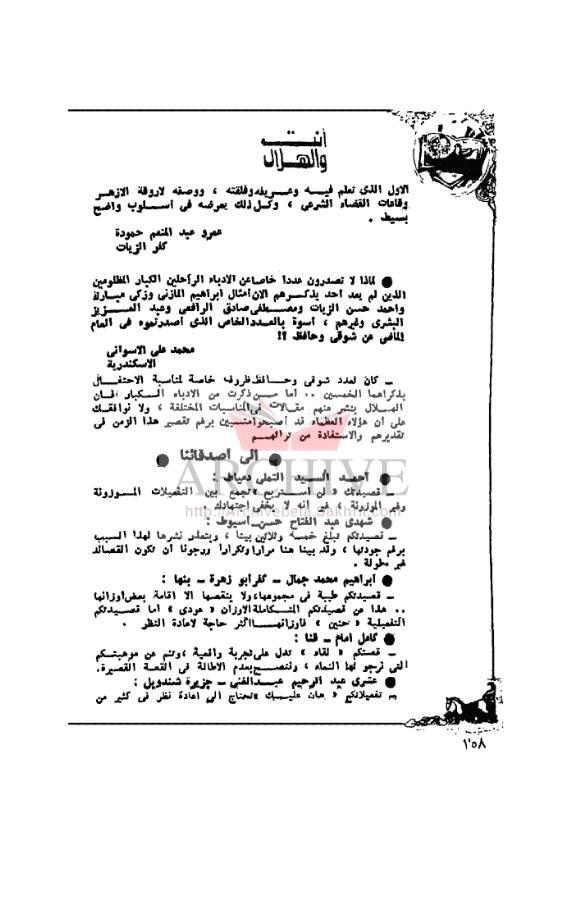 أنت
والهلال
الاول الذى تعلم فيه وعريفه وفلقته ، ووصفه لاروقة الازهر
وقاعات القضاء الشرعى ، وكل ذلك يعرضه فى أسلوب واضح
بسيط .
عمرو عبد المنعم حمودة
كفر الزيات
● لماذا لا تصدرون عددا خاصا عن الادباء الراحلين الكبار المظلومين
الذين لم يعد أحد يذكرهم الان أمثال ابراهيم المازنى وزكى مبارك
واحمد حسن الزيات ومصطفى صادق الرافعى وعبد العزيز
البشرى وغيرهم ، أسوة بالعدد الخاص الذى أصدرتموه فى العام
الماضى عن شوقى وحافظ ؟!
محمد على الاسوانى
الاسكندرية
ـ كان لعدد شوقى وحافظ ظروف خاصة لمناسبة الاحتفال
بذكراهما الخمسين .. أما من ذكرت من الادباء الكبار فان
الهلال ينشر عنهم مقالات فى المناسبات المختلفة ، ولا نوافقك
على أن هؤلاء العظماء قد أصبحوا منسيين برغم تقصير هذا الزمن فى
تقديرهم والاستفادة من تراثهم
● الى أصدقائنا ●
● أحمد السيد التملى دمياط :
ـ قصيدتك لن تستريح الجمع بين التفعيلات الموزونة
وغير الموزونة ، غير أنه لا يخفى اجتهادك
ARCHIVE
http://Archivebeta.Sakhrit.com
● شهدى عبد الفتاح حسن ـ أسيوط :
ـ قصيدتكم تبلغ خمسة وثلاثين بيتا ، ويتعذر نشرها لهذا السبب
برغم جودتها ، وقد بينا هنا مرارا وتكرارا ورجونا أن تكون القصائد
غير مطولة .
● ابراهيم محمد جمال ـ كفر أبو زهرة ـ بنها :
ـ قصيدتكم طيبة فى مجموعها ولا ينقصها الا اقامة بعض أوزانها
.. هذا عن قصيدتكم المتكاملة الاوزان « عودى » أما قصيدتكم
التفعيلية « حنين » فأوزانها أكثر حاجة لاعادة النظر .
● كامل امام ـ قنا :
ـ قصتكم « لقاء » تدل على تجربة واقعية ، وتنم عن موهبتكم
التى نرجو لها النماء ، وننصح بعدم الاطالة فى القصة القصيرة .
● عشرى عبد الرحيم عبد الغنى ـ جزيرة شندويل :
ـ تفعيلاتكم « هان عليك » تحتاج الى اعادة نظر فى كثير من
١٥٨